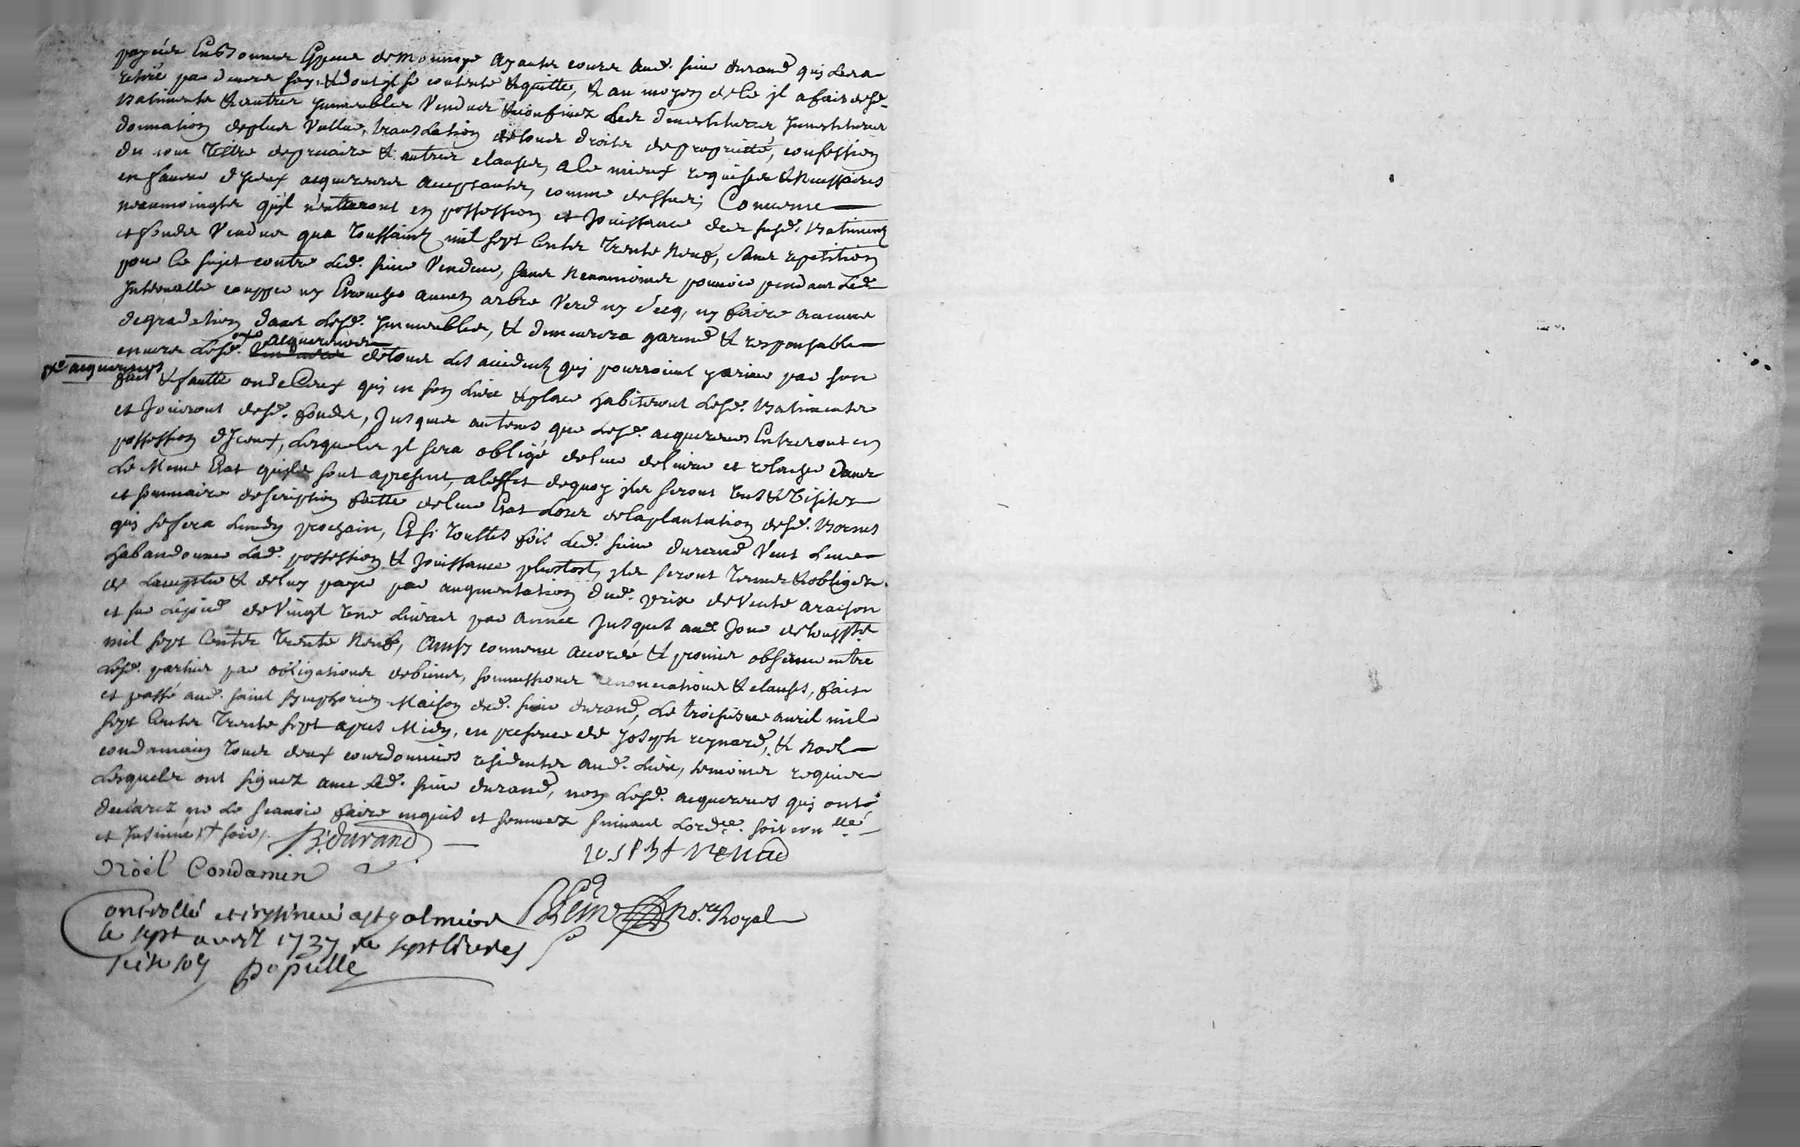 payées En bonnes Espece de monoye ayants cours aud. sieur durand qui les a
retiré par devers soy, & dont il se contente & quitte, & au moyen de ce il a fait desd.
Batiments & autres Immeubles Vendus & confinez Les devestitures Investitures
donnation de plus Vallue, translation de tous droits de proprietté, confession
du nom tiltre de precaire & autres clauses, a le mieux requises & necessaires
en faveur d'Iceux acquereurs acceptants, comme dessus; Convenu
neanmoingts qu'il n'entreront en possession et Jouissance des susd. Batiments
et fonds Vendus qua toussaints mil sept Cents trente Neuf, sans repetition
pour ce sujet contre led. sieur Vendeur, sans Neanmoins pouvoir pendant led.
Intervalle coupper ny Ebrancher aucun arbre Verd ny secq, ny faire aucune
degradation dans lesd. Immeubles, & demeurera garend & responsable
envers lesd. acquereurs de tous les accidents qui pourroient y ariver par son
pxt acquereurs
fait & fautte ou de Ceux qui en son Lieu & place habiteront lesd. Batiments
et Jouiront desd. fonds, Jusques au tems que lesd. acquereurs Entreront en
possession d'Iceux, Lesquels il sera obligé de leur delivrer et relacher dans
Le Meme Etat quils sont apresent, a leffet dequoy ils seront veus & visitez
et sommaire description faitte de leur Etat Lors de la plantation desd. Bornes
qui se fera Lundy prochain, Et si touttes fois led. sieur durand Veut Leur
habandonner lad. possession & Jouissance plustost, ils seront tenus & obligez
de Laccepter & de luy payer par augmentation dud. prix de Vente a raison
de Vingt Livres par Année Jusques aud. Jour de toussts
mil sept Cents trente Neuf, Ainsy convenu accordé & promis observer entre
lesd. parties par obligations de biens, soumissions renonciations & clauses, fait
et passé aud. saint simphorien Maison dud. sieur durand, Le troisieme avril mil
sept Cents trente sept apres Midy, en presence de Joseph reynard, & Noel
condamain tous deux courdonniers residents aud. Lieu, temoins requis
Lesquels ont signez avec led. sieur durand, non lesd. acquereurs qui onts
declarez ne le scavoir faire enquis et sommez suivant Lordce. soit conllé
et Insinué & foit.
B. durand
Joseph Renard
Nöel Condamin
Reine Nore. Royal
Controllé et insinué a st galmier
le sept avril 1737 re sept livres
seise sols populle